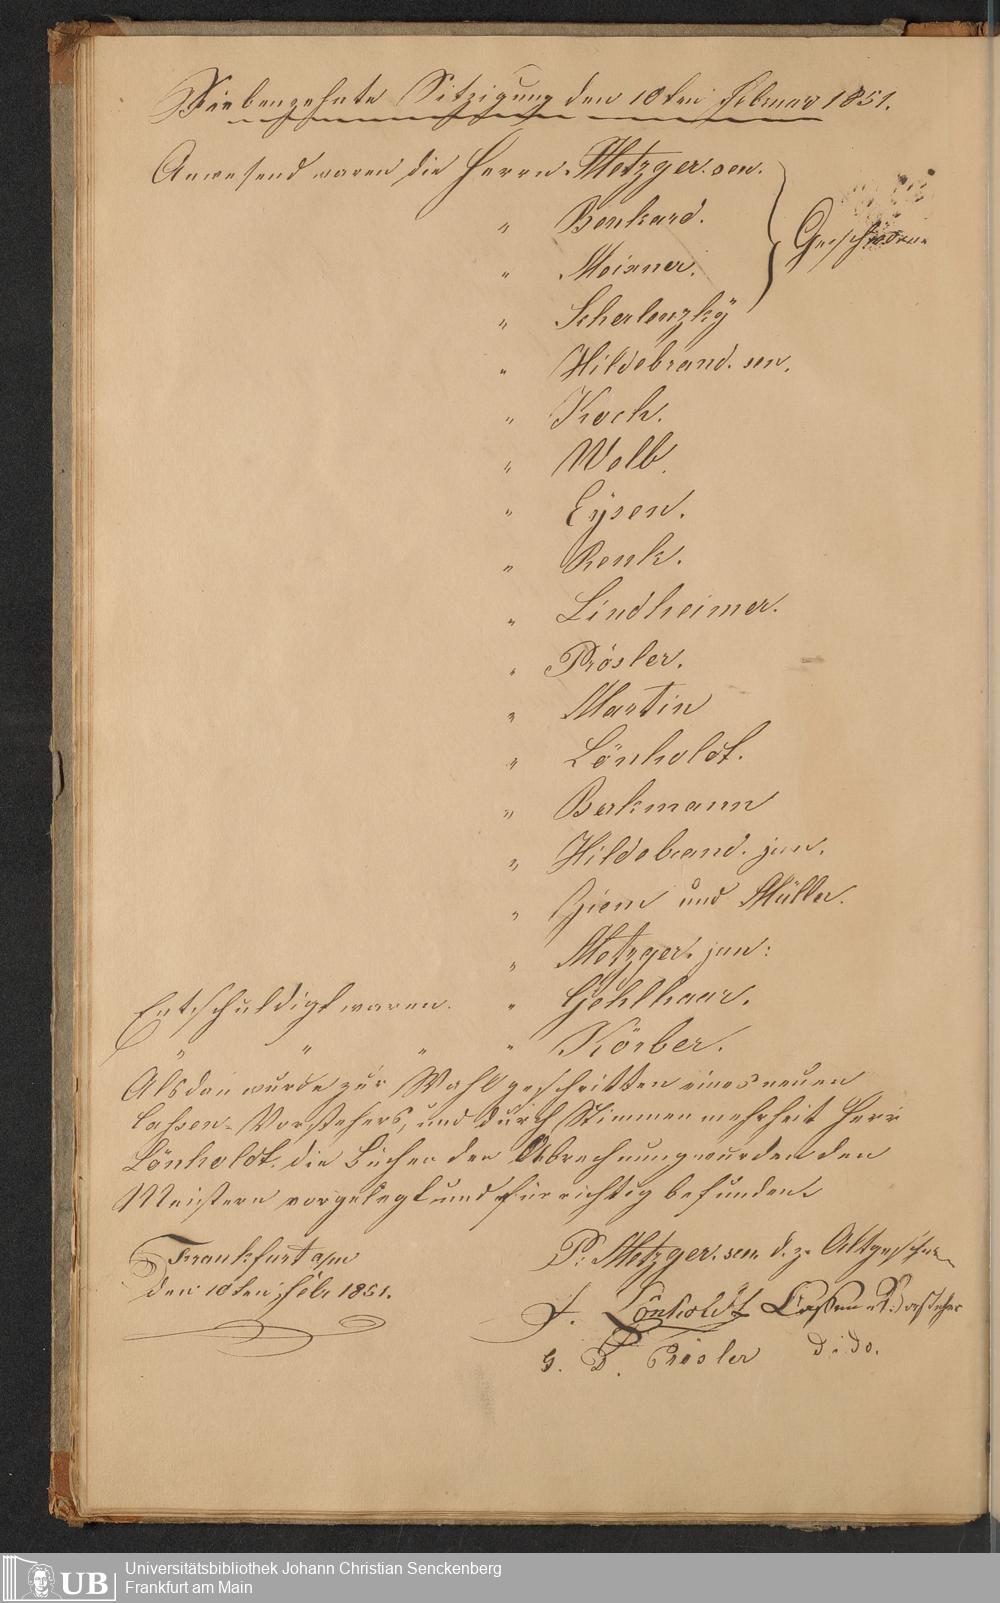 Siebenzehnte Sitzigung den 10ten Februar 1851.
Anwesend waren die Herrn Metzger. sen.
" Benkard.
" Meixner.
Geschworne
" Scherlenzky
" Hildebrand. sen.
" Koch.
" Wolb.
" Eysen.
" Renk.
" Lindheimer.
" Prösler.
" Martin
" Lönholdt.
" Berkmann
" Hildebrand. jun.
" Ziem und Müller.
" Metzger. jun:
Entschuldigt waren. " Gehlhaar.
" " " " Körber.
Alsdan wurde zur Wahl geschritten eines neuen
Cassen-Vorstehers, und durch Stimmenmehrheit Herr
Lönholdt. die Bücher der Abrechnung wurden den
Meistern vorgelegt und für richtig befunden.
Frankfurt a/m
den 10ten Feb. 1851.
P: Metzger. sen. d. z. Altgeschw
F. Lönholdt Cassen Vorsteher
G. P. Prösler do. do.
UB
Universitätsbibliothek Johann Christian Senckenberg
Frankfurt am Main